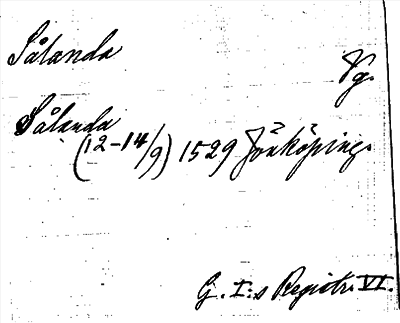 Sålanda Vg.
Sålanda
(12-14/9) 1529 Jönköping.
G. I:s Registr. VI.